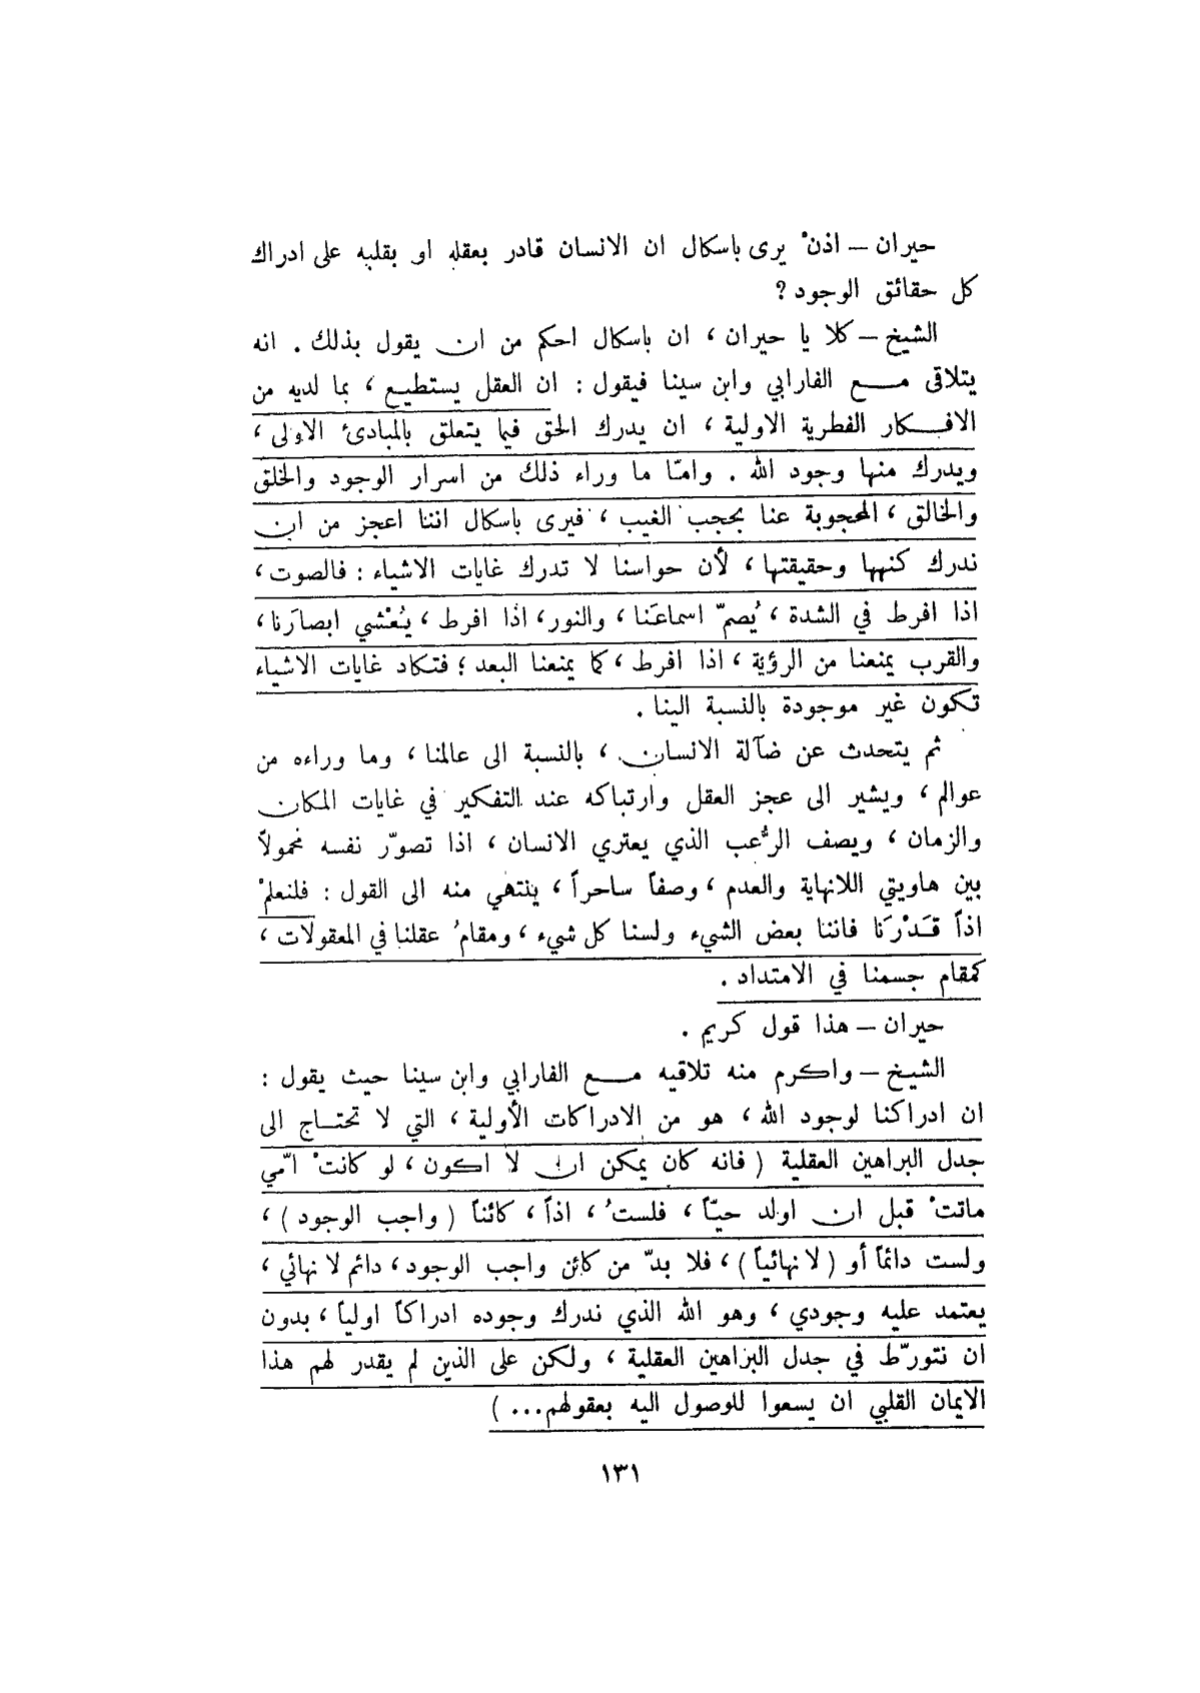 حيران – اذنْ يرى باسكال ان الانسان قادر بعقله او بقلبه على ادراك
كل حقائق الوجود ؟
الشيخ – كلا يا حيران ، ان باسكال احكم من ان يقول بذلك . انه
يتلاقى مع الفارابي وابن سينا فيقول : ان العقل يستطيع ، بما لديه من
الافكار الفطرية الاولية ، ان يدرك الحق فيما يتعلق بالمبادئ الاولى ،
ويدرك منها وجود الله . وامّا ما وراء ذلك من اسرار الوجود والخلق
والخالق ، المحجوبة عنا بحجب الغيب ، فيرى باسكال اننا اعجز من ان
ندرك كنهها وحقيقتها ، لأن حواسنا لا تدرك غايات الاشياء : فالصوت ،
اذا افرط في الشدة ، يُصمّ اسماعَنا ، والنور ، اذا افرط ، يُعْشي ابصارَنا ،
والقرب يمنعنا من الرؤية ، اذا افرط ، كما يمنعنا البعد ؛ فتكاد غايات الاشياء
تكون غير موجودة بالنسبة الينا .
ثم يتحدث عن ضآلة الانسان ، بالنسبة الى عالمنا ، وما وراءه من
عوالم ، ويشير الى عجز العقل وارتباكه عند التفكير في غايات المكان
والزمان ، ويصف الرُّعب الذي يعتري الانسان ، اذا تصوّر نفسه محمولاً
بين هاويتي اللانهاية والعدم ، وصفاً ساحراً ، ينتهي منه الى القول : فلنعلمْ
اذاً قَدْرَنا فاننا بعض الشيء ولسنا كل شيء ، ومقامُ عقلنا في المعقولات ،
كمقام جسمنا في الامتداد .
حيران – هذا قول كريم .
الشيخ – واكرم منه تلاقيه مع الفارابي وابن سينا حيث يقول :
ان ادراكنا لوجود الله ، هو من الادراكات الأولية ، التي لا تحتاج الى
جدل البراهين العقلية ( فانه كان يمكن ان لا اكون ، لو كانتْ امّي
ماتتْ قبل ان اولد حيّاً ، فلستُ ، اذاً ، كائناً ( واجب الوجود ) ،
ولست دائماً أو ( لا نهائياً ) ، فلا بدّ من كائن واجب الوجود ، دائم لا نهائي ،
يعتمد عليه وجودي ، وهو الله الذي ندرك وجوده ادراكاً اولياً ، بدون
ان نتورّط في جدل البراهين العقلية ، ولكن على الذين لم يقدر لهم هذا
الايمان القلبي ان يسعوا للوصول اليه بعقولهم... )
١٣١